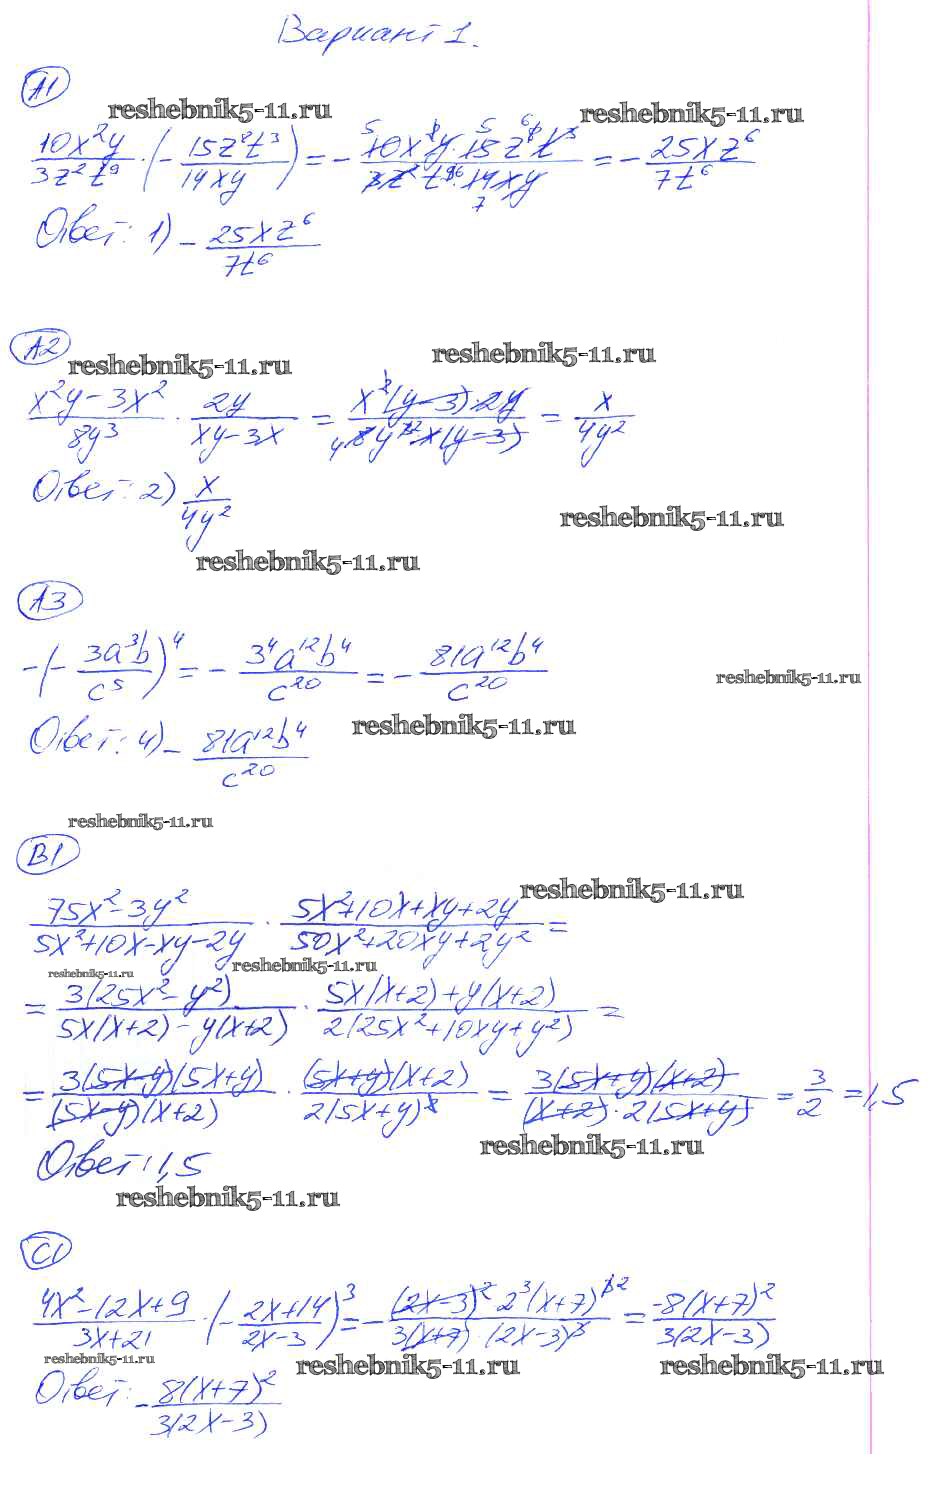 Вариант 1.
А1
reshebnik5-11.ru reshebnik5-11.ru
10x²y/3z²t⁹ · (−15z⁸t³/14xy) = −10x²y·15z⁸t³/3z²t⁹·14xy = −25xz⁶/7t⁶
Ответ: 1) −25xz⁶/7t⁶
А2
reshebnik5-11.ru reshebnik5-11.ru
x²y−3x²/8y³ · 2y/xy−3x = x²(y−3)·2y/8y³·x(y−3) = x/4y²
Ответ: 2) x/4y²
reshebnik5-11.ru
reshebnik5-11.ru
А3
−(−3a³b/c⁵)⁴ = −3⁴a¹²b⁴/c²⁰ = −81a¹²b⁴/c²⁰
reshebnik5-11.ru
Ответ: 4) −81a¹²b⁴/c²⁰
reshebnik5-11.ru
reshebnik5-11.ru
В1
reshebnik5-11.ru
75x²−3y²/5x²+10x−xy−2y · 5x²+10x+xy+2y/50x²+20xy+2y² =
reshebnik5-11.ru reshebnik5-11.ru
= 3(25x²−y²)/5x(x+2)−y(x+2) · 5x(x+2)+y(x+2)/2(25x²+10xy+y²) =
= 3(5x−y)(5x+y)/(5x−y)(x+2) · (5x+y)(x+2)/2(5x+y)² = 3(5x+y)(x+2)/(x+2)·2(5x+y) = 3/2 = 1,5
reshebnik5-11.ru
Ответ: 1,5
reshebnik5-11.ru
С1
4x²−12x+9/3x+21 · (−2x+14/2x−3)³ = −(2x−3)²·2³(x+7)³/3(x+7)·(2x−3)³ = −8(x+7)²/3(2x−3)
reshebnik5-11.ru reshebnik5-11.ru reshebnik5-11.ru
Ответ: −8(x+7)²/3(2x−3)